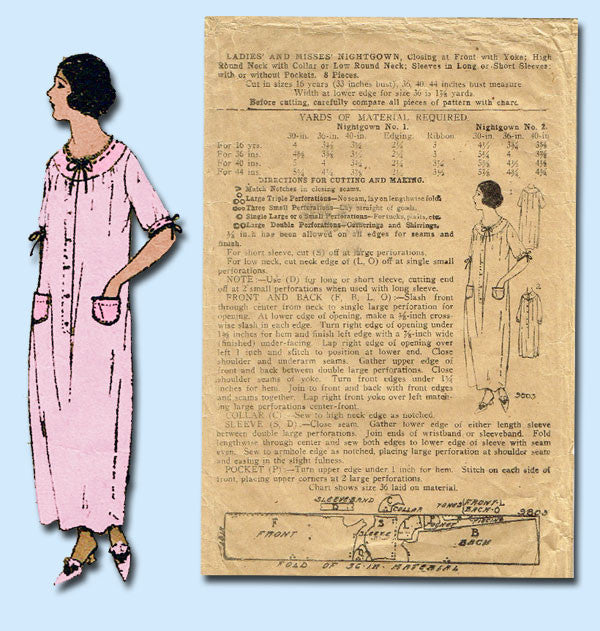 LADIES' AND MISSES' NIGHTGOWN, Closing at Front with Yoke; High
Round Neck with Collar or Low Round Neck; Sleeves in Long or Short Sleeves;
with or without Pockets. 8 Pieces.
Cut in sizes 16 years (33 inches bust), 36, 40, 44 inches bust measure
Width at lower edge for size 36 is 1⅞ yards.
Before cutting, carefully compare all pieces of pattern with chart.
YARDS OF MATERIAL REQUIRED.
Nightgown No. 1. Nightgown No. 2.
30-in. 36-in. 40-in. Edging. Ribbon 30-in. 36-in. 40-in.
For 16 yrs. 4
For 36 ins.
For 40 ins. 5 4
For 44 ins.
DIRECTIONS FOR CUTTING AND MAKING.
Match Notches in closing seams.
Large Triple Perforations—No seam, lay on lengthwise fold
Three Small Perforations—Lay straight of goods.
Single Large or Small Perforations—For tucks, plaits, etc.
Large Double Perforations—Gatherings and Shirrings.
⅜ in. has been allowed on all edges for seams and
finish.
For short sleeve, cut (S) off at large perforations.
For low neck, cut neck edge of (L, O) off at single small
perforations.
NOTE:—Use (D) for long or short sleeve, cutting end
off at 2 small perforations when used with long sleeve.
FRONT AND BACK (F, B, L, O):—Slash front
through center from neck to single large perforation for
opening. At lower edge of opening, make a ⅜-inch cross-
wise slash in each edge. Turn right edge of opening under
1⅜ inches for hem and finish left edge with a ⅞-inch wide
(finished) under-facing. Lap right edge of opening over
left 1 inch and stitch to position at lower end. Close
shoulder and underarm seams. Gather upper edge of
front and back between double large perforations. Close
shoulder seams of yoke. Turn front edges under 1½
inches for hem. Join to front and back with front edges
and seams together. Lap right front yoke over left match-
ing large perforations center-front.
COLLAR (C).—Sew to high neck edge as notched.
SLEEVE (S, D).—Close seam. Gather lower edge of either length sleeve
between double large perforations. Join ends of wristban or sleeveband. Fold
lengthwise through center and sew both edges to lower edge of sleeve with seam
even. Sew to armhole edge as notched, placing large perforation at shoulder seam
and easing in the slight fulness.
POCKET (P):—Turn upper edge under 1 inch for hem. Stitch on each side of
front, placing upper corners at 2 large perforations.
Chart shows size 36 laid on material.
2
9803
SLEEVEBAND
D
C
COLLAR
YOKES
FRONT-L
BACK-O
9803
F
FRONT
S
SLEEVE
L
P
POCKET
B
BACK
FOLD OF 36-IN. MATERIAL